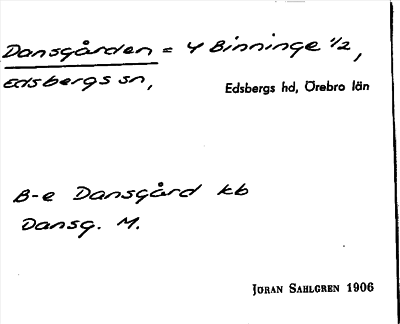 Dansgården = 4 Binninge 1/2,
Edsbergs sn,
Edsbergs hd, Örebro län
B-e Dansgård kb
Dansg. M.
JÖRAN SAHLGREN 1906